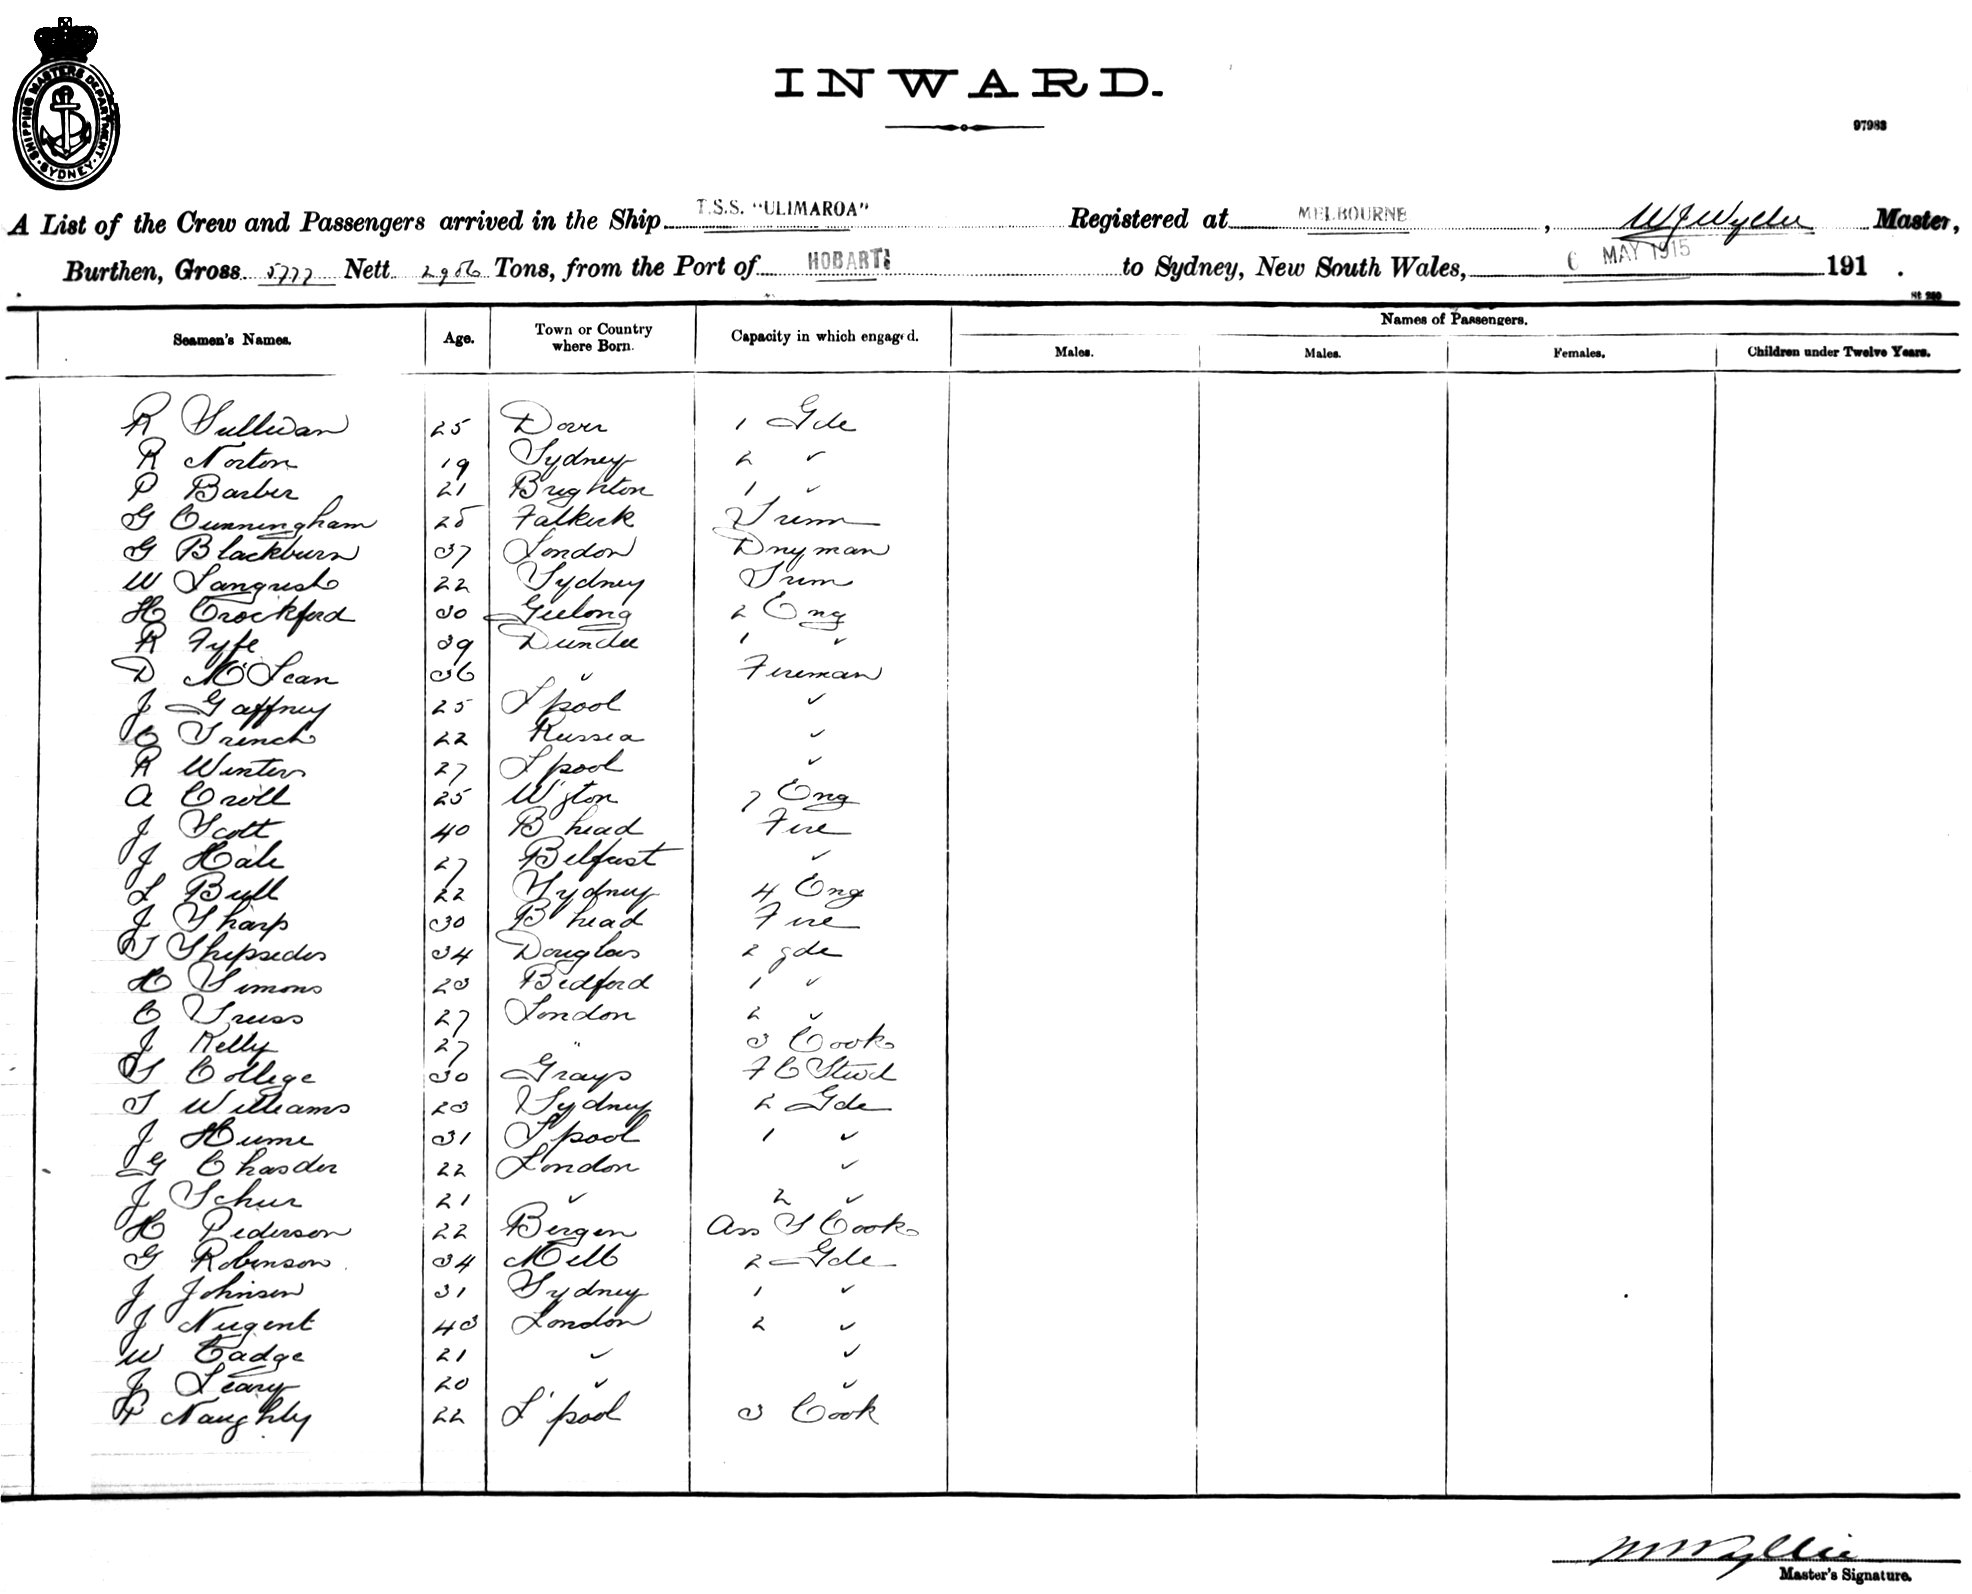 SHIPPING MASTERS DEPARTMENT · SYDNEY ·
INWARD.
97983
A List of the Crew and Passengers arrived in the Ship T.S.S. "ULIMAROA" Registered at MELBOURNE, W J Wyllie Master,
Burthen, Gross 5777 Nett 2956 Tons, from the Port of HOBART to Sydney, New South Wales, 6 MAY 1915 191 .
St 260
Seamen's Names. Age. Town or Country where Born. Capacity in which engaged. Names of Passengers.
Males. Males. Females. Children under Twelve Years.
R Sullivan 25 Dover 1 Gde
R Norton 19 Sydney 2 ✓
P Barber 21 Brighton 1 ✓
G Cunningham 25 Falkirk Trim
G Blackburn 37 London Dnyman
W Langrish 22 Sydney Trim
H Crockford 30 Geelong 2 Eng
R Fyfe 39 Dundee 1 ✓
D McLean 36 ✓ Fireman
J Gaffney 25 L'pool ✓
C Trench 22 Russia ✓
R Winters 27 L'pool ✓
A Croll 25 W'gton 7 Eng
J Scott 40 B head Fire
J Hale 27 Belfast ✓
L Bull 22 Sydney 4 Eng
J Sharp 30 B head Fire
T Shepsides 34 Douglas 2 gde
H Simons 23 Bedford 1 ✓
C Truss 27 London 2 ✓
J Kelly 27 " 3 Cook
T College 30 Grays F C Stwd
T Williams 23 Sydney 2 Gde
J Hume 31 L'pool 1 ✓
G Chasder 22 London ✓
J Schur 21 ✓ 2 ✓
H Pederson 22 Bergen Ass S Cook
G Robinson 34 Melb 2 Gde
J Johnson 31 Sydney 1 ✓
J Nugent 43 London 2 ✓
W Cadge 21 ✓ ✓
J Leary 20 ✓ ✓
P Naughty 22 L'pool 3 Cook
W J Wyllie
Master's Signature.